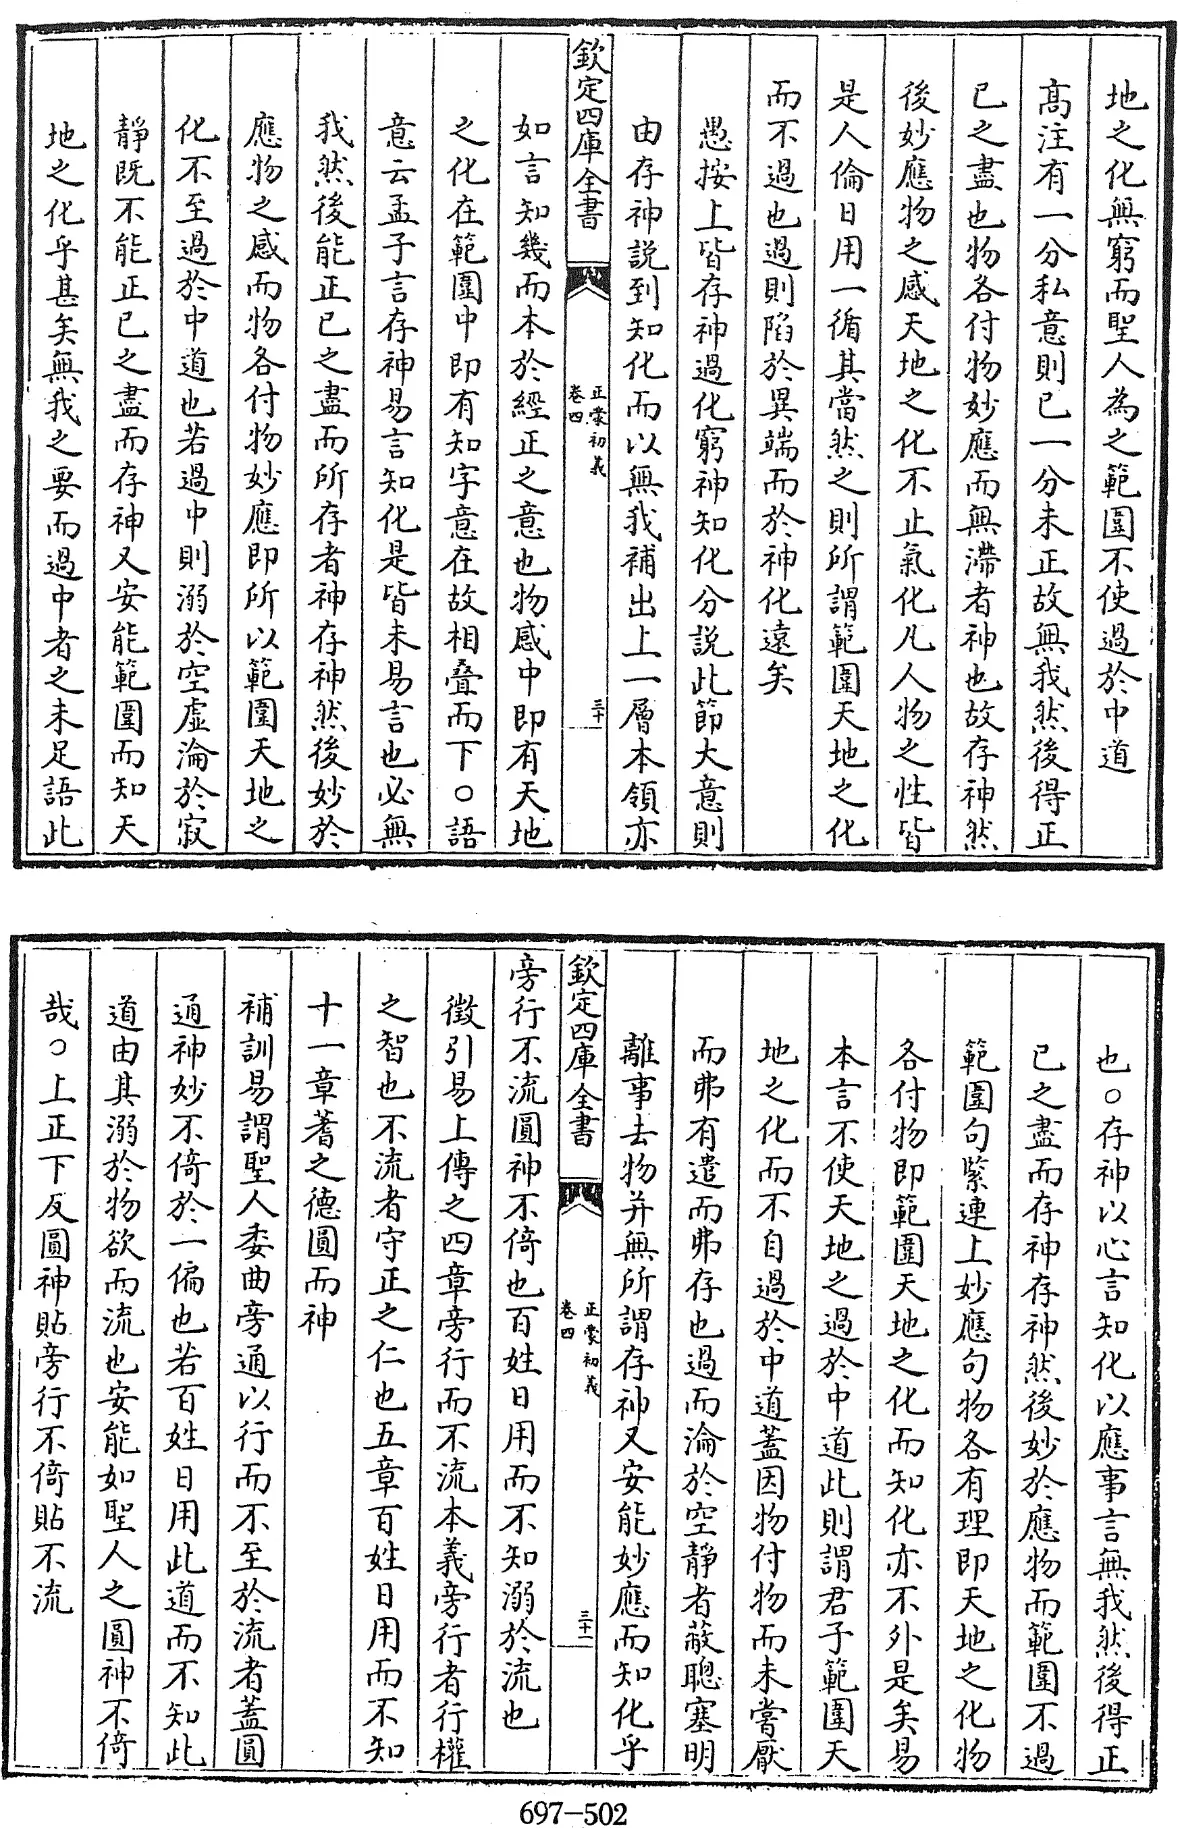 地之化無窮而聖人為之範圍不使過於中道
髙注有一分私意則已一分未正故無我然後得正
已之盡也物各付物妙應而無滯者神也故存神然
後妙應物之感天地之化不止氣化凡人物之性皆
是人倫日用一循其當然之則所謂範圍天地之化
而不過也過則陷於異端而於神化遠矣
愚按上皆存神過化窮神知化分説此節大意則
由存神説到知化而以無我補出上一層本領亦
欽定四庫全書
正蒙初義
卷四
三十
如言知幾而本於經正之意也物感中即有天地
之化在範圍中即有知字意在故相疊而下○語
意云孟子言存神易言知化是皆未易言也必無
我然後能正已之盡而所存者神存神然後妙於
應物之感而物各付物妙應即所以範圍天地之
化不至過於中道也若過中則溺於空虚淪於寂
靜既不能正已之盡而存神又安能範圍而知天
地之化乎甚矣無我之要而過中者之未足語此
也○存神以心言知化以應事言無我然後得正
已之盡而存神存神然後妙於應物而範圍不過
範圍句緊連上妙應句物各有理即天地之化物
各付物即範圍天地之化而知化亦不外是矣易
本言不使天地之過於中道此則謂君子範圍天
地之化而不自過於中道蓋因物付物而未嘗厭
而弗有遣而弗存也過而淪於空靜者蔽聰塞明
離事去物并無所謂存神又安能妙應而知化乎
欽定四庫全書
正蒙初義
卷四
三十一
旁行不流圓神不倚也百姓日用而不知溺於流也
徵引易上傳之四章旁行而不流本義旁行者行權
之智也不流者守正之仁也五章百姓日用而不知
十一章蓍之德圓而神
補訓易謂聖人委曲旁通以行而不至於流者蓋圓
通神妙不倚於一偏也若百姓日用此道而不知此
道由其溺於物欲而流也安能如聖人之圓神不倚
哉○上正下反圓神貼旁行不倚貼不流
697-502